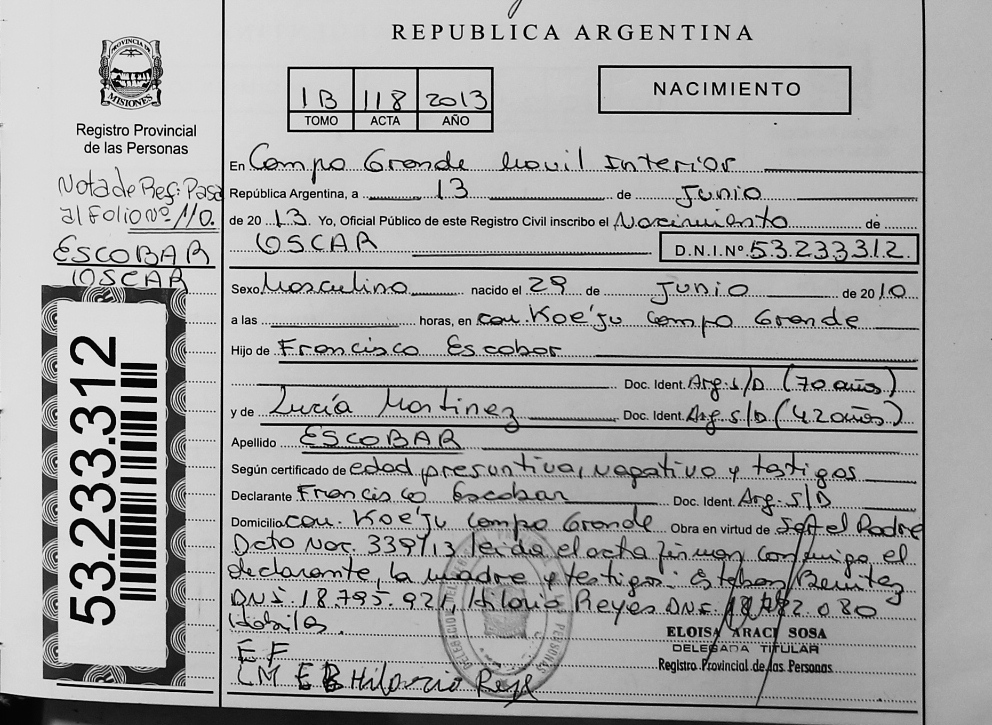 REPUBLICA ARGENTINA
PROVINCIA DE
MISIONES
Registro Provincial
de las Personas
1B 118 2013
TOMO ACTA AÑO
NACIMIENTO
Nota de Ref: Pasa
al Folio Nº 110.
ESCOBAR
OSCAR
53.233.312
En Campo Grande Movil Interior
República Argentina, a 13 de Junio
de 2013. Yo, Oficial Público de este Registro Civil inscribo el Nacimiento de
OSCAR D.N.I. Nº 53.233.312.
Sexo Masculino nacido el 29 de Junio de 2010
a las horas, en com. Koe'ju Campo Grande
Hijo de Francisco Escobar
Doc. Ident. Arg. S/D (70 años)
y de Lucía Martinez Doc. Ident. Arg. S/D (42 años)
Apellido ESCOBAR
Según certificado de edad presuntiva, negativo y testigos
Declarante Francisco Escobar Doc. Ident. Arg. S/D
Domicilio com. Koe'ju Campo Grande Obra en virtud de ser el Padre
Dcto Nac. 339/13 leida el acta firman conmigo el
declarante, la madre y testigos: Esteban Benitez
DNI 18.795.921, Hilario Reyes DNI 080
Habiles.
ELOISA ARACI SOSA
DELEGADA TITULAR
Registro Provincial de las Personas
E F
LM EB Hilario Reye